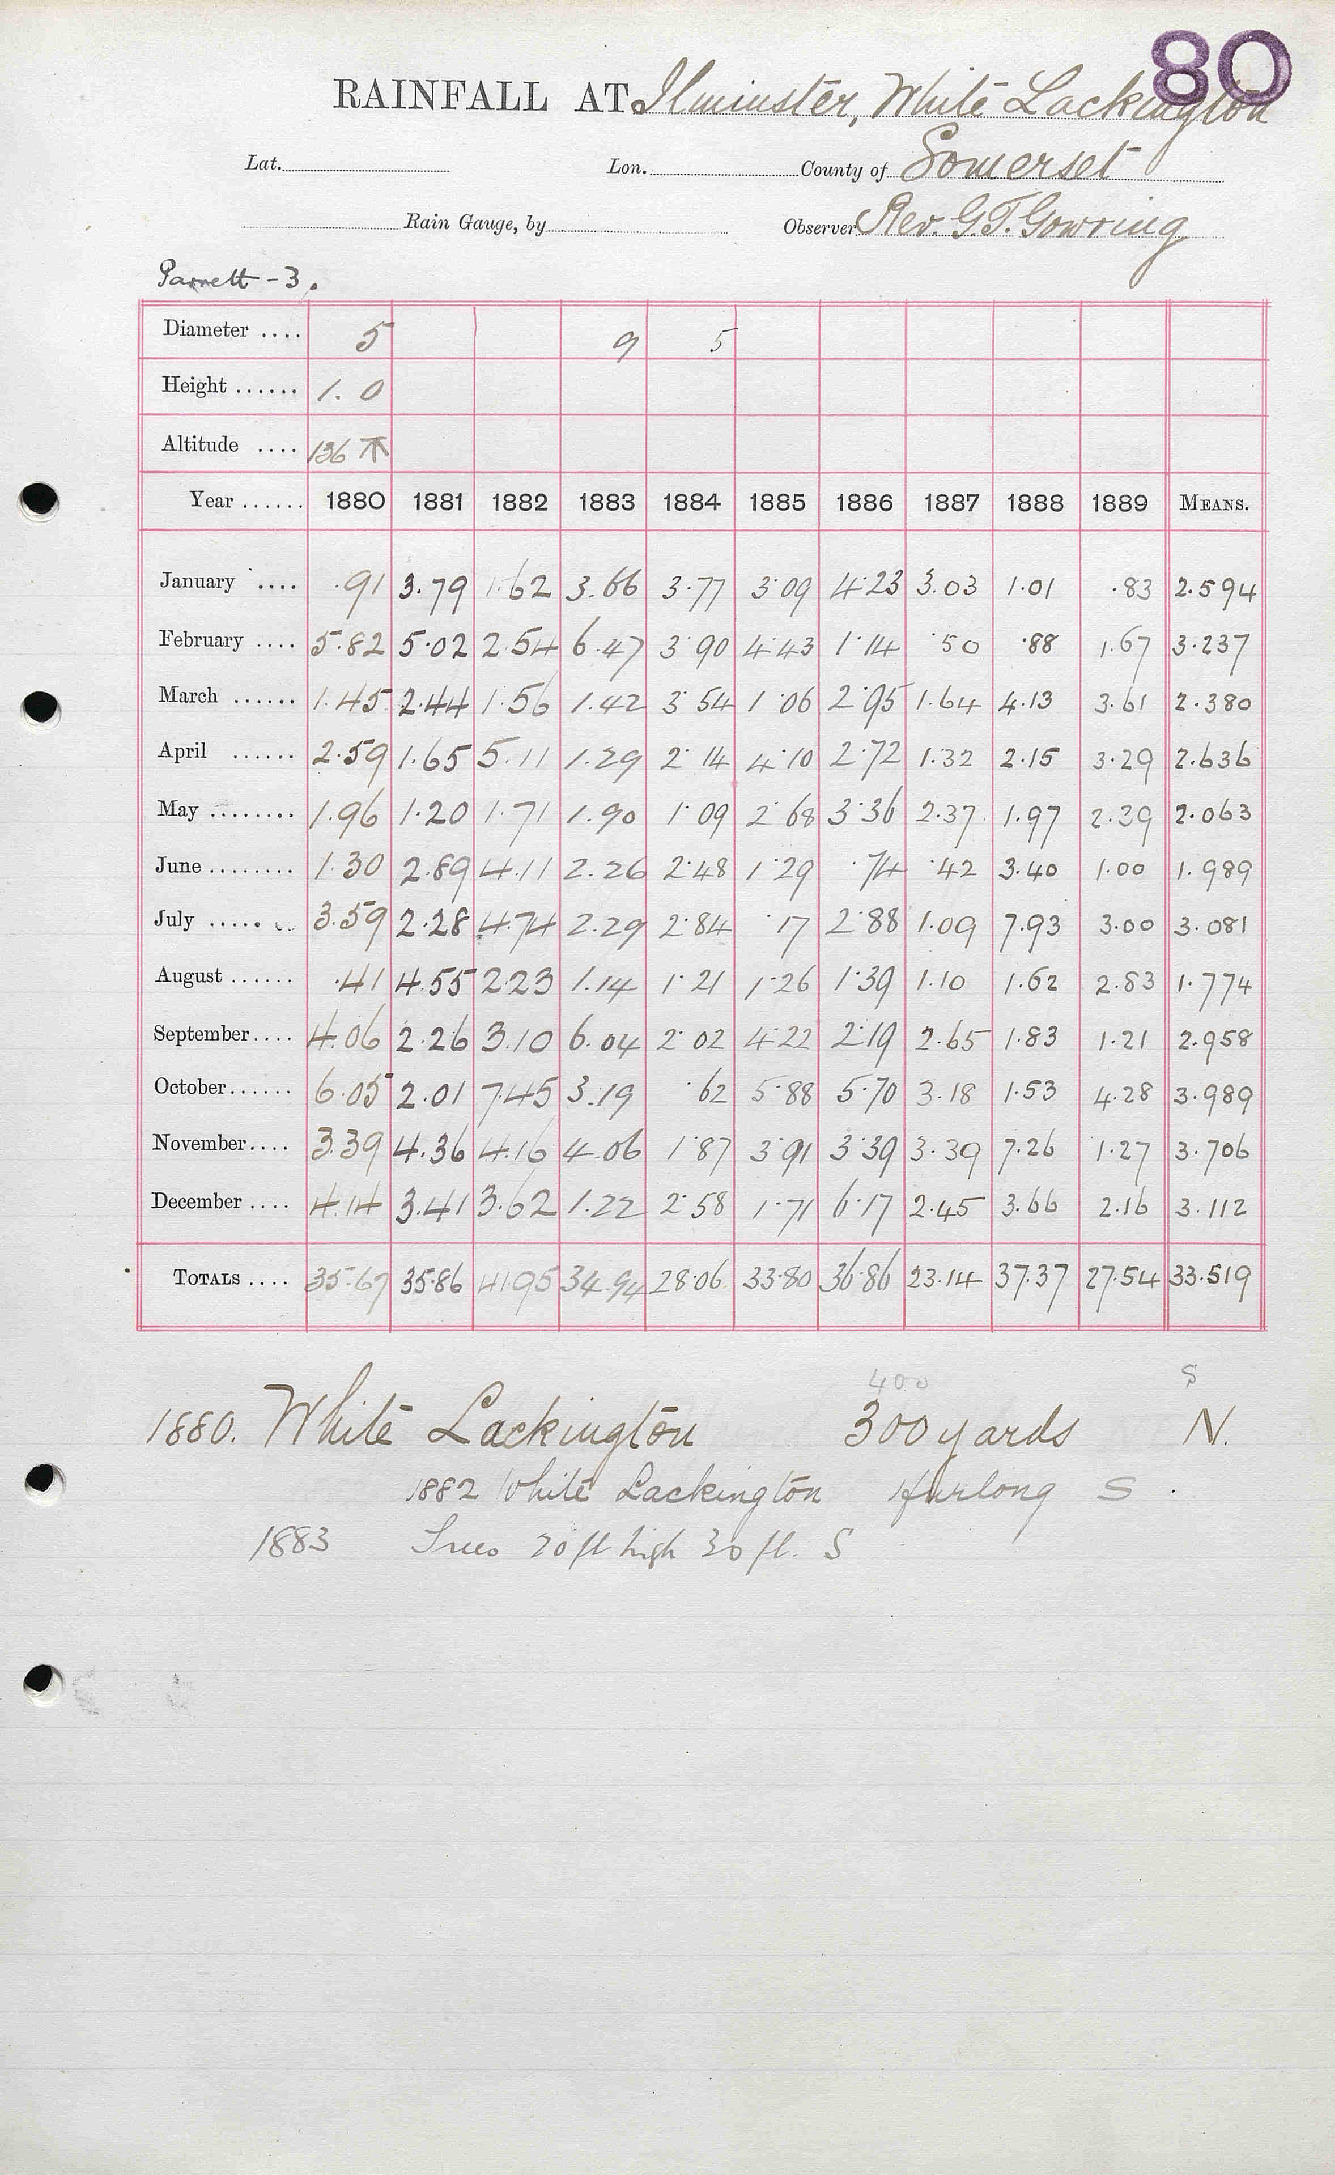 80
RAINFALL AT Ilminster, White Lackington
Lat. Lon. County of Somerset
Rain Gauge, by Observer Rev. G.T. Gowring
Parrett - 3.
Diameter .... 5 9 5
Height ...... 1. 0
Altitude .... 136
Year ...... 1880 1881 1882 1883 1884 1885 1886 1887 1888 1889 MEANS.
January .... .91 3.79 1.62 3.66 3.77 3.09 4.23 3.03 1.01 .83 2.594
February .... 5.82 5.02 2.54 6.47 3.90 4.43 1.14 .50 .88 1.67 3.237
March ...... 1.45 2.44 1.56 1.42 3.54 1.06 2.95 1.64 4.13 3.61 2.380
April ...... 2.59 1.65 5.11 1.29 2.14 4.10 2.72 1.32 2.15 3.29 2.636
May ........ 1.96 1.20 1.71 1.90 1.09 2.68 3.36 2.37 1.97 2.39 2.063
June ........ 1.30 2.89 4.11 2.26 2.48 1.29 .74 .42 3.40 1.00 1.989
July ....... 3.59 2.28 4.74 2.29 2.84 .17 2.88 1.09 7.93 3.00 3.081
August ...... .41 4.55 2.23 1.14 1.21 1.26 1.39 1.10 1.62 2.83 1.774
September .... 4.06 2.26 3.10 6.04 2.02 4.22 2.19 2.65 1.83 1.21 2.958
October ...... 6.05 2.01 7.45 3.19 .62 5.88 5.70 3.18 1.53 4.28 3.989
November .... 3.39 4.36 4.16 4.06 1.87 3.91 3.39 3.39 7.26 1.27 3.706
December .... 4.14 3.41 3.62 1.22 2.58 1.71 6.17 2.45 3.66 2.16 3.112
TOTALS .... 35.67 35.86 41.95 34.94 28.06 33.80 36.86 23.14 37.37 27.54 33.519
400 S
1880. White Lackington 300 yards N.
1882 White Lackington furlong S
1883 Trees 20 ft high 30 ft. S